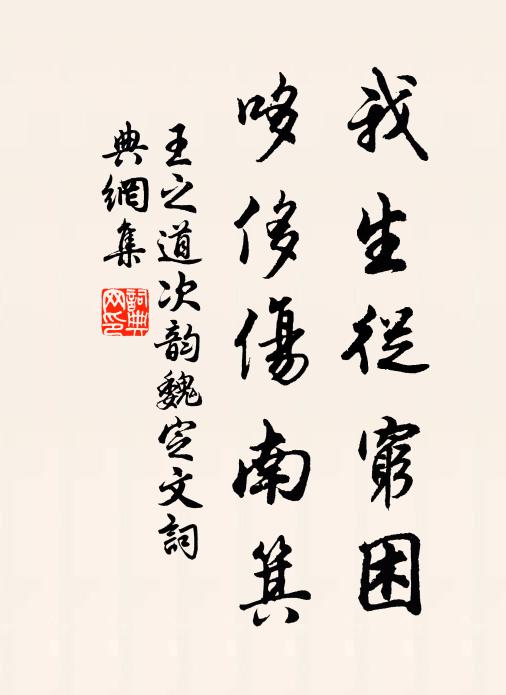 我生從窮困
哆侈傷南箕
王之道次韵魏定文詞
典網集
詞典
网印